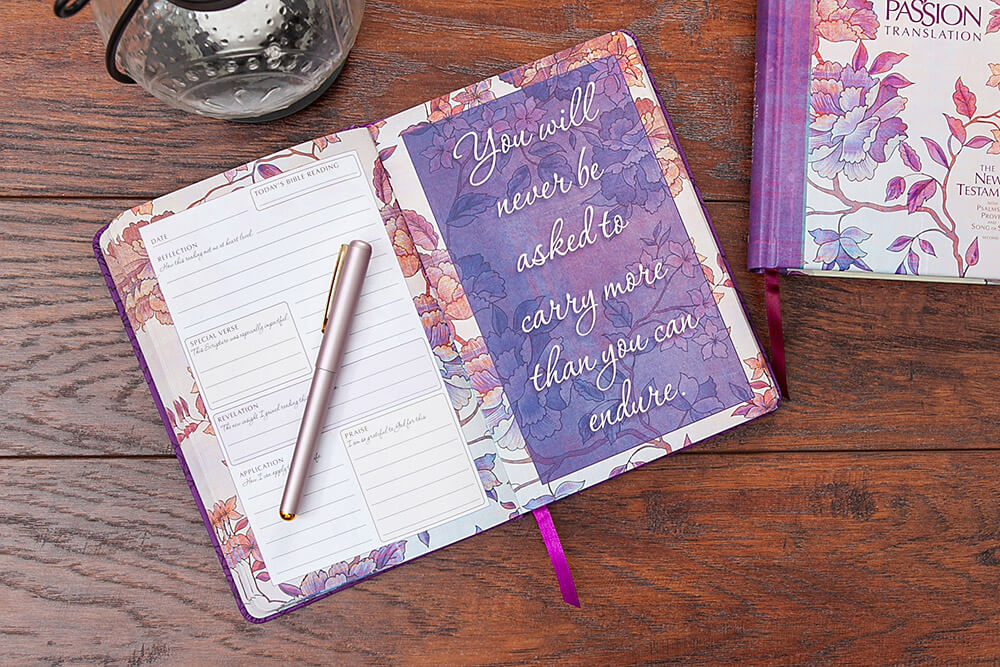 TODAY'S BIBLE READING
DATE
REFLECTION
How this reading met me at heart level.
SPECIAL VERSE
This Scripture was especially impactful.
REVELATION
The new insight I gained reading
APPLICATION
How I can apply
PRAISE
I am so grateful to God for this
You will
never be
asked to
carry more
than you can
endure.
PASSION
TRANSLATION
THE
NEW
TESTAM
PSALMS
PROV
AND
SONG OF S